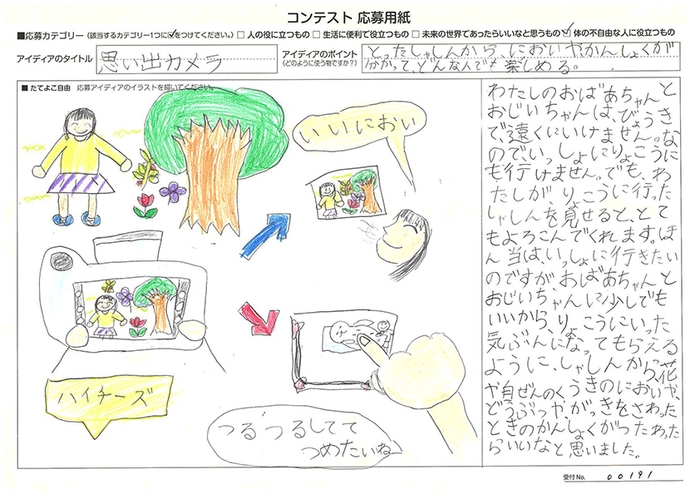 コンテスト 応募用紙
■応募カテゴリー（該当するカテゴリー1つに✓をつけてください。） □ 人の役に立つもの □ 生活に便利で役立つもの □ 未来の世界であったらいいなと思うもの ☑ 体の不自由な人に役立つもの
アイディアのタイトル 思い出カメラ
アイディアのポイント
（どのように使う物ですか？）
とったしゃしんから、においやかんしょくが
分かって、どんな人でも楽しめる。
■ たてよこ自由 応募アイディアのイラストを描いてください。
いいにおい
ハイチーズ
つるつるしてて
つめたいね
わたしのおばあちゃんと
おじいちゃんは、びょうき
で遠くにいけません。な
のでいっしょにりょこうに
も行けません。でも、わ
たしが、りょこうに行った
しゃしんを見せると、とて
もよろこんでくれます。ほ
ん当はいっしょに行きたい
のですが、おばあちゃんと
おじいちゃんに少しでも
いいから、りょこうにいった
気ぶんになってもらえる
ように、しゃしんから花
や自ぜんのくうきのにおいや、
どうぶつやがっきをさわった
ときのかんしょくがつたわった
らいいなと思いました。
受付No. 00191